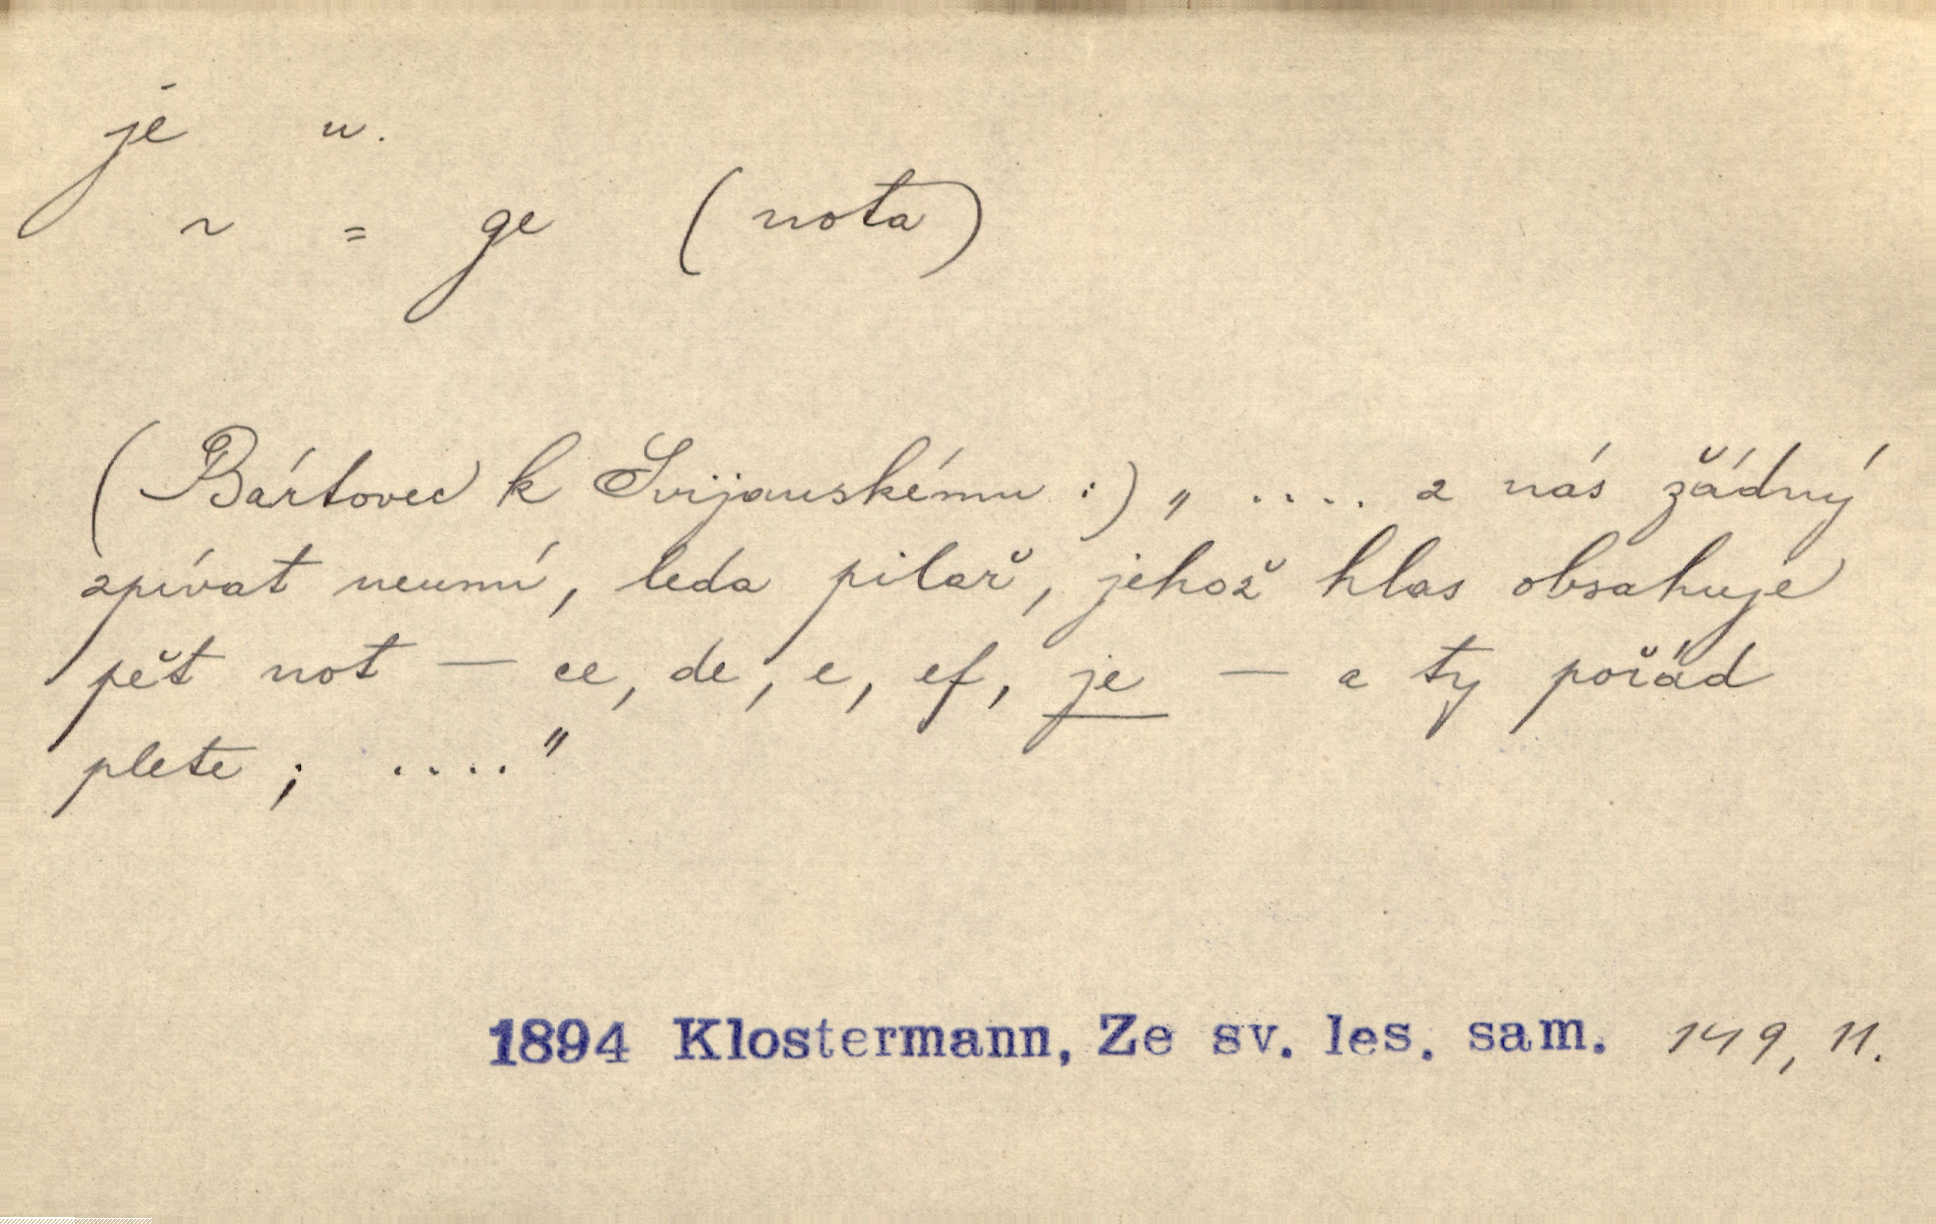 jé n.
~ = ge (nota)
(Bártovec k Svijanskému :) „ .... z nás žádný
zpívat neumí, leda pilař, jehož hlas obsahuje
pět not — ce, de, e, ef, je — a ty pořád
plete ; ...."
1894 Klostermann, Ze sv. les. sam. 149, 11.